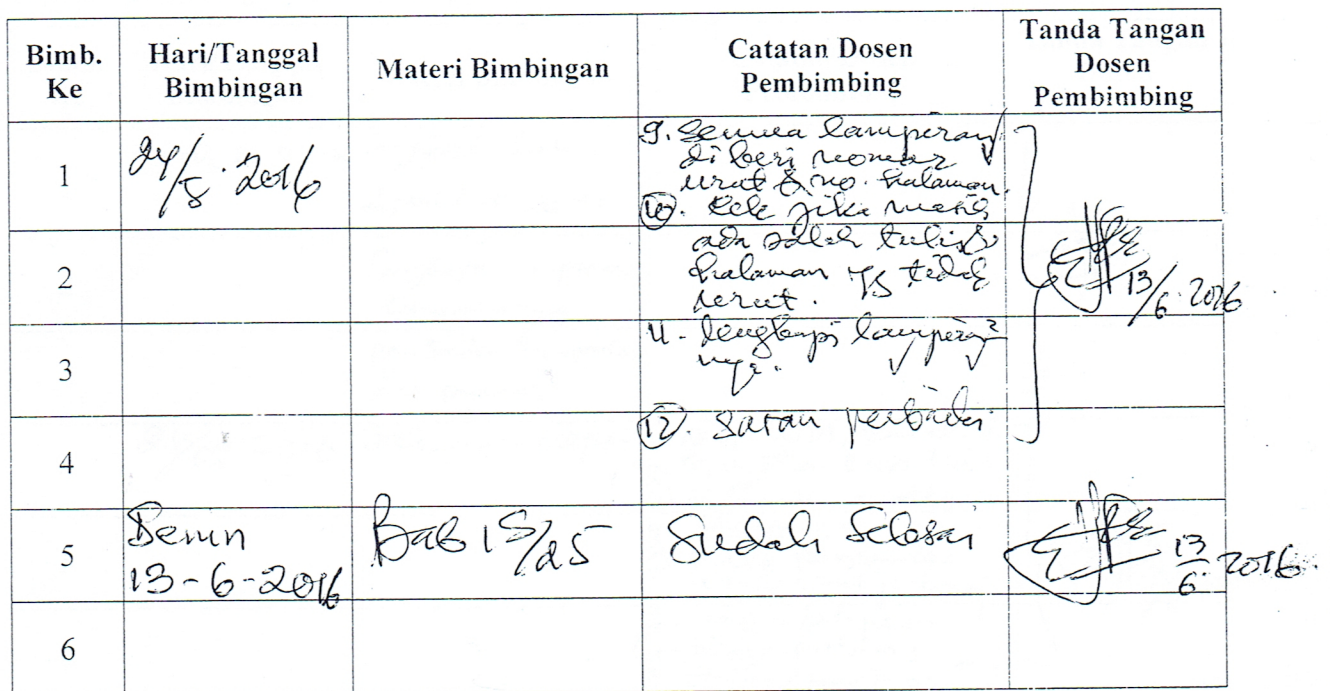 Bimb. Ke
Hari/Tanggal Bimbingan
Materi Bimbingan
Catatan Dosen Pembimbing
Tanda Tangan Dosen Pembimbing
1
24/5 · 2016
9. Semua lampiran
di beri nomor
urut & no. halaman.
10. Cek jika masih
2
ada salah tulis &
halaman yg tidak
urut.
13/6 · 2016
3
11 - lengkapi lampiran2
nya.
4
12. Saran perbaiki
5
Senin
13-6-2016
Bab 1 S/d 5
Sudah Selesai
13/6 · 2016.
6